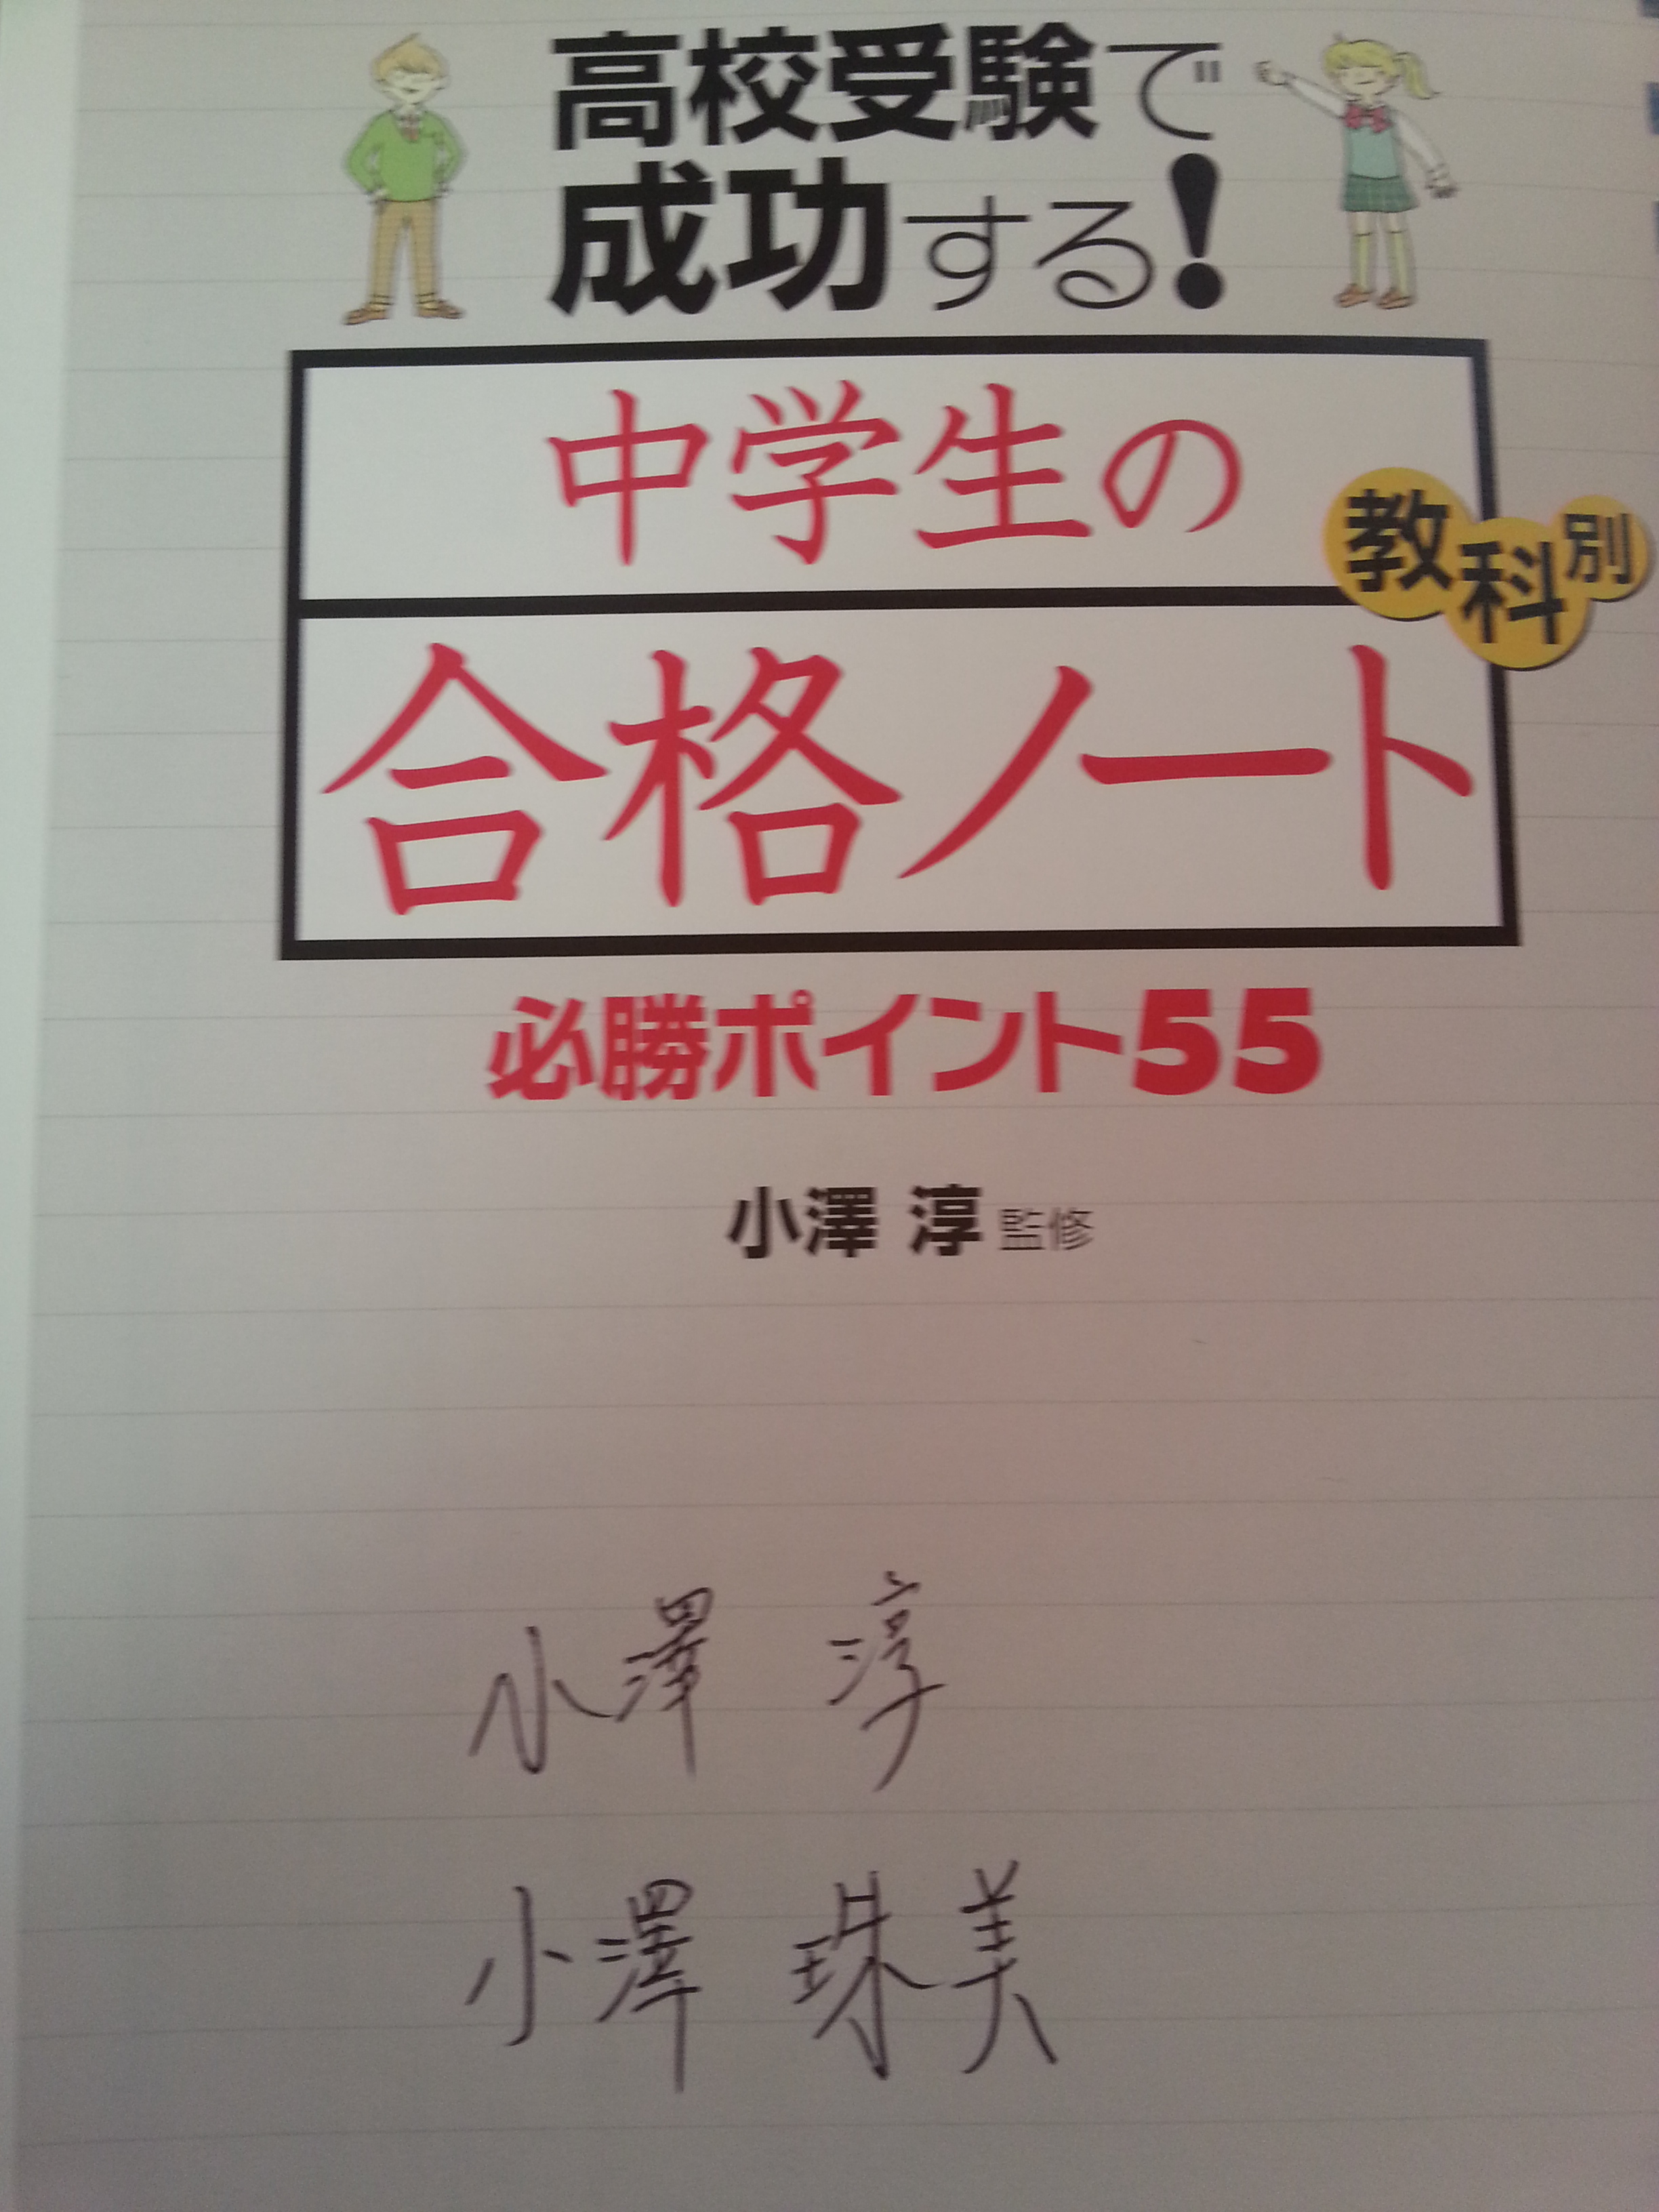 高校受験で
成功する!
中学生の
教科別
合格ノート
必勝ポイント55
小澤 淳 監修
小澤 淳
小澤 珠美